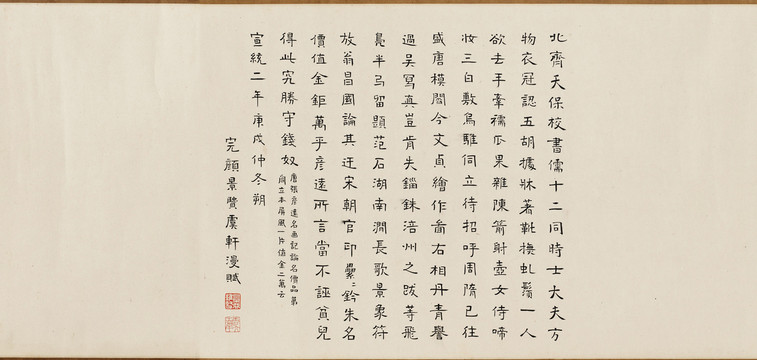 北齊天保校書儒十二同時士大夫方
物衣冠認五胡據牀著靴撫虬鬚一人
欲去手牽襦瓜果雜陳箭射壺女侍啼
妝三白敷烏騅伺立待招呼周隋已往
盛唐模閻令丈貞繪作啚右相丹青譽
過吳寫真豈肯失錙銖涪州之跋等飛
鳧半勾留題范石湖南澗長歌景象符
放翁昌國論其迂宋朝官印纍纍鈐朱名
價值金鉅萬乎彥遠所言當不誣貧兒
得此究勝守錢奴
唐張彥遠名畫記論名價品第
屏風一片值金二萬云
宣統二年庚戌仲冬朔
完顏景賢虞軒漫賦